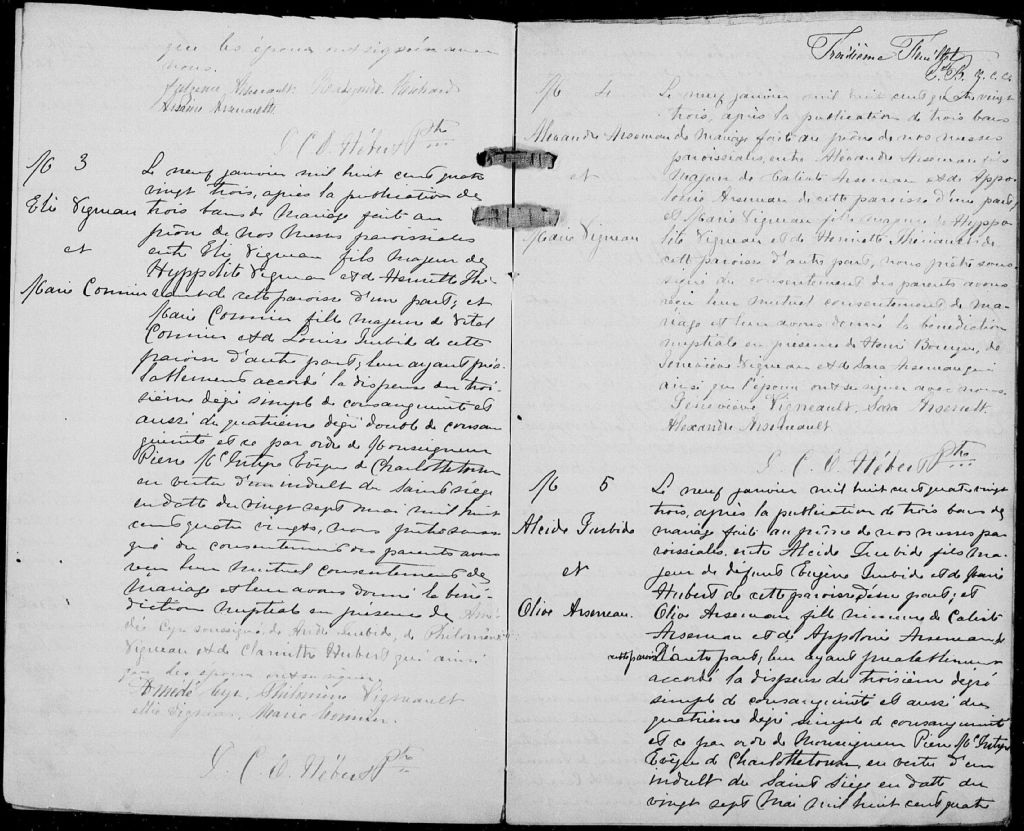 que les époux ont signé avec
nous.
Arsenault. Richard
Arsenault.
S. C. O. Hébert Ptre
M 3
Le neuf janvier mil huit cent quatre
vingt trois, après la publication de
Elie Vigneau trois bans de Mariage faite au
prône de nos Messes paroissiales
et entre Elie Vigneau fils Majeur de
Hyppolite Vigneau et de Henriette Thé-
Marie Cormier riault de cette paroisse d'une part; et
Marie Cormier fille majeure de Vital
Cormier et de Louise Turbide de cette
paroisse d'autre part; leur ayant préa-
lablement accordé la dispense du troi-
sième degré simple de consanguinité et
aussi du quatrième degré double de consan
guinité et ce par ordre de Monseigneur
Pierre McIntyre Evêque de Charlottetown
en vertu d'un indult du Saint siège
en datte du vingt sept mai mil huit
cent quatre vingts, nous prêtre soussi
gné du consentement des parents avons
reçu leur mutuel consentement de
Mariage et leur avons donné la béné-
diction nuptiale en présence de Amé-
dé Cyr soussigné, de André Turbide, de Philomène
Vigneau et de Hubert qui ainsi
que les époux ont su signer.
Amédé Cyr, Philomène Vigneault
Elie Vigneau, Marie Cormier.
S. C. O. Hébert Ptre
Troisième Feuillet
M 4
Le neuf janvier mil huit cent quatre vingt
trois, après la publication de trois bans
Alexandre Arseneau de Mariage faite au prône de nos messes
paroissiales, entre Alexandre Arseneau fils
et majeur de Calixte Arseneau et de Appo-
lonie Arseneau de cette paroisse d'une part,
et Marie Vigneau fille majeure de Hyppo-
Marie Vigneau lite Vigneau et de Henriette Thériault de
cette paroisse d'autre part, nous prêtre sous-
signé du consentement des parents avons
reçu leur mutuel consentement de ma-
riage et leur avons donné la bénédiction
nuptiale en présence de Henri Bourque, de
Geneviève Vigneau et de Sara Arseneau qui
ainsi que l'époux ont su signer avec nous.
Geneviève Vigneault, Sara Arsenault.
Alexandre Arseneault
S. C. O. Hébert Ptre
M 5
Le neuf janvier mil huit cent quatre vingt
trois, après la publication de trois bans de
Alcide Turbide mariage faite au prône de nos messes pa-
roissiales, entre Alcide Turbide fils ma-
et jeur de défunt Eugène Turbide et de Marie
Hubert de cette paroisse d'une part; et
Olive Arseneau. Olive Arseneau fille mineure de Calixte
Arseneau et de Appolonie Arseneau de
cette paroisse d'autre part; leur ayant préalablement
accordé la dispense du troisième degré
simple de consanguinité et aussi du
quatrième degré simple de consanguinité
et ce par ordre de Monseigneur Pierre McIntyre
Evêque de Charlottetown, en vertu d'un
indult du Saint Siège en datte du
vingt sept Mai mil huit cent quatre